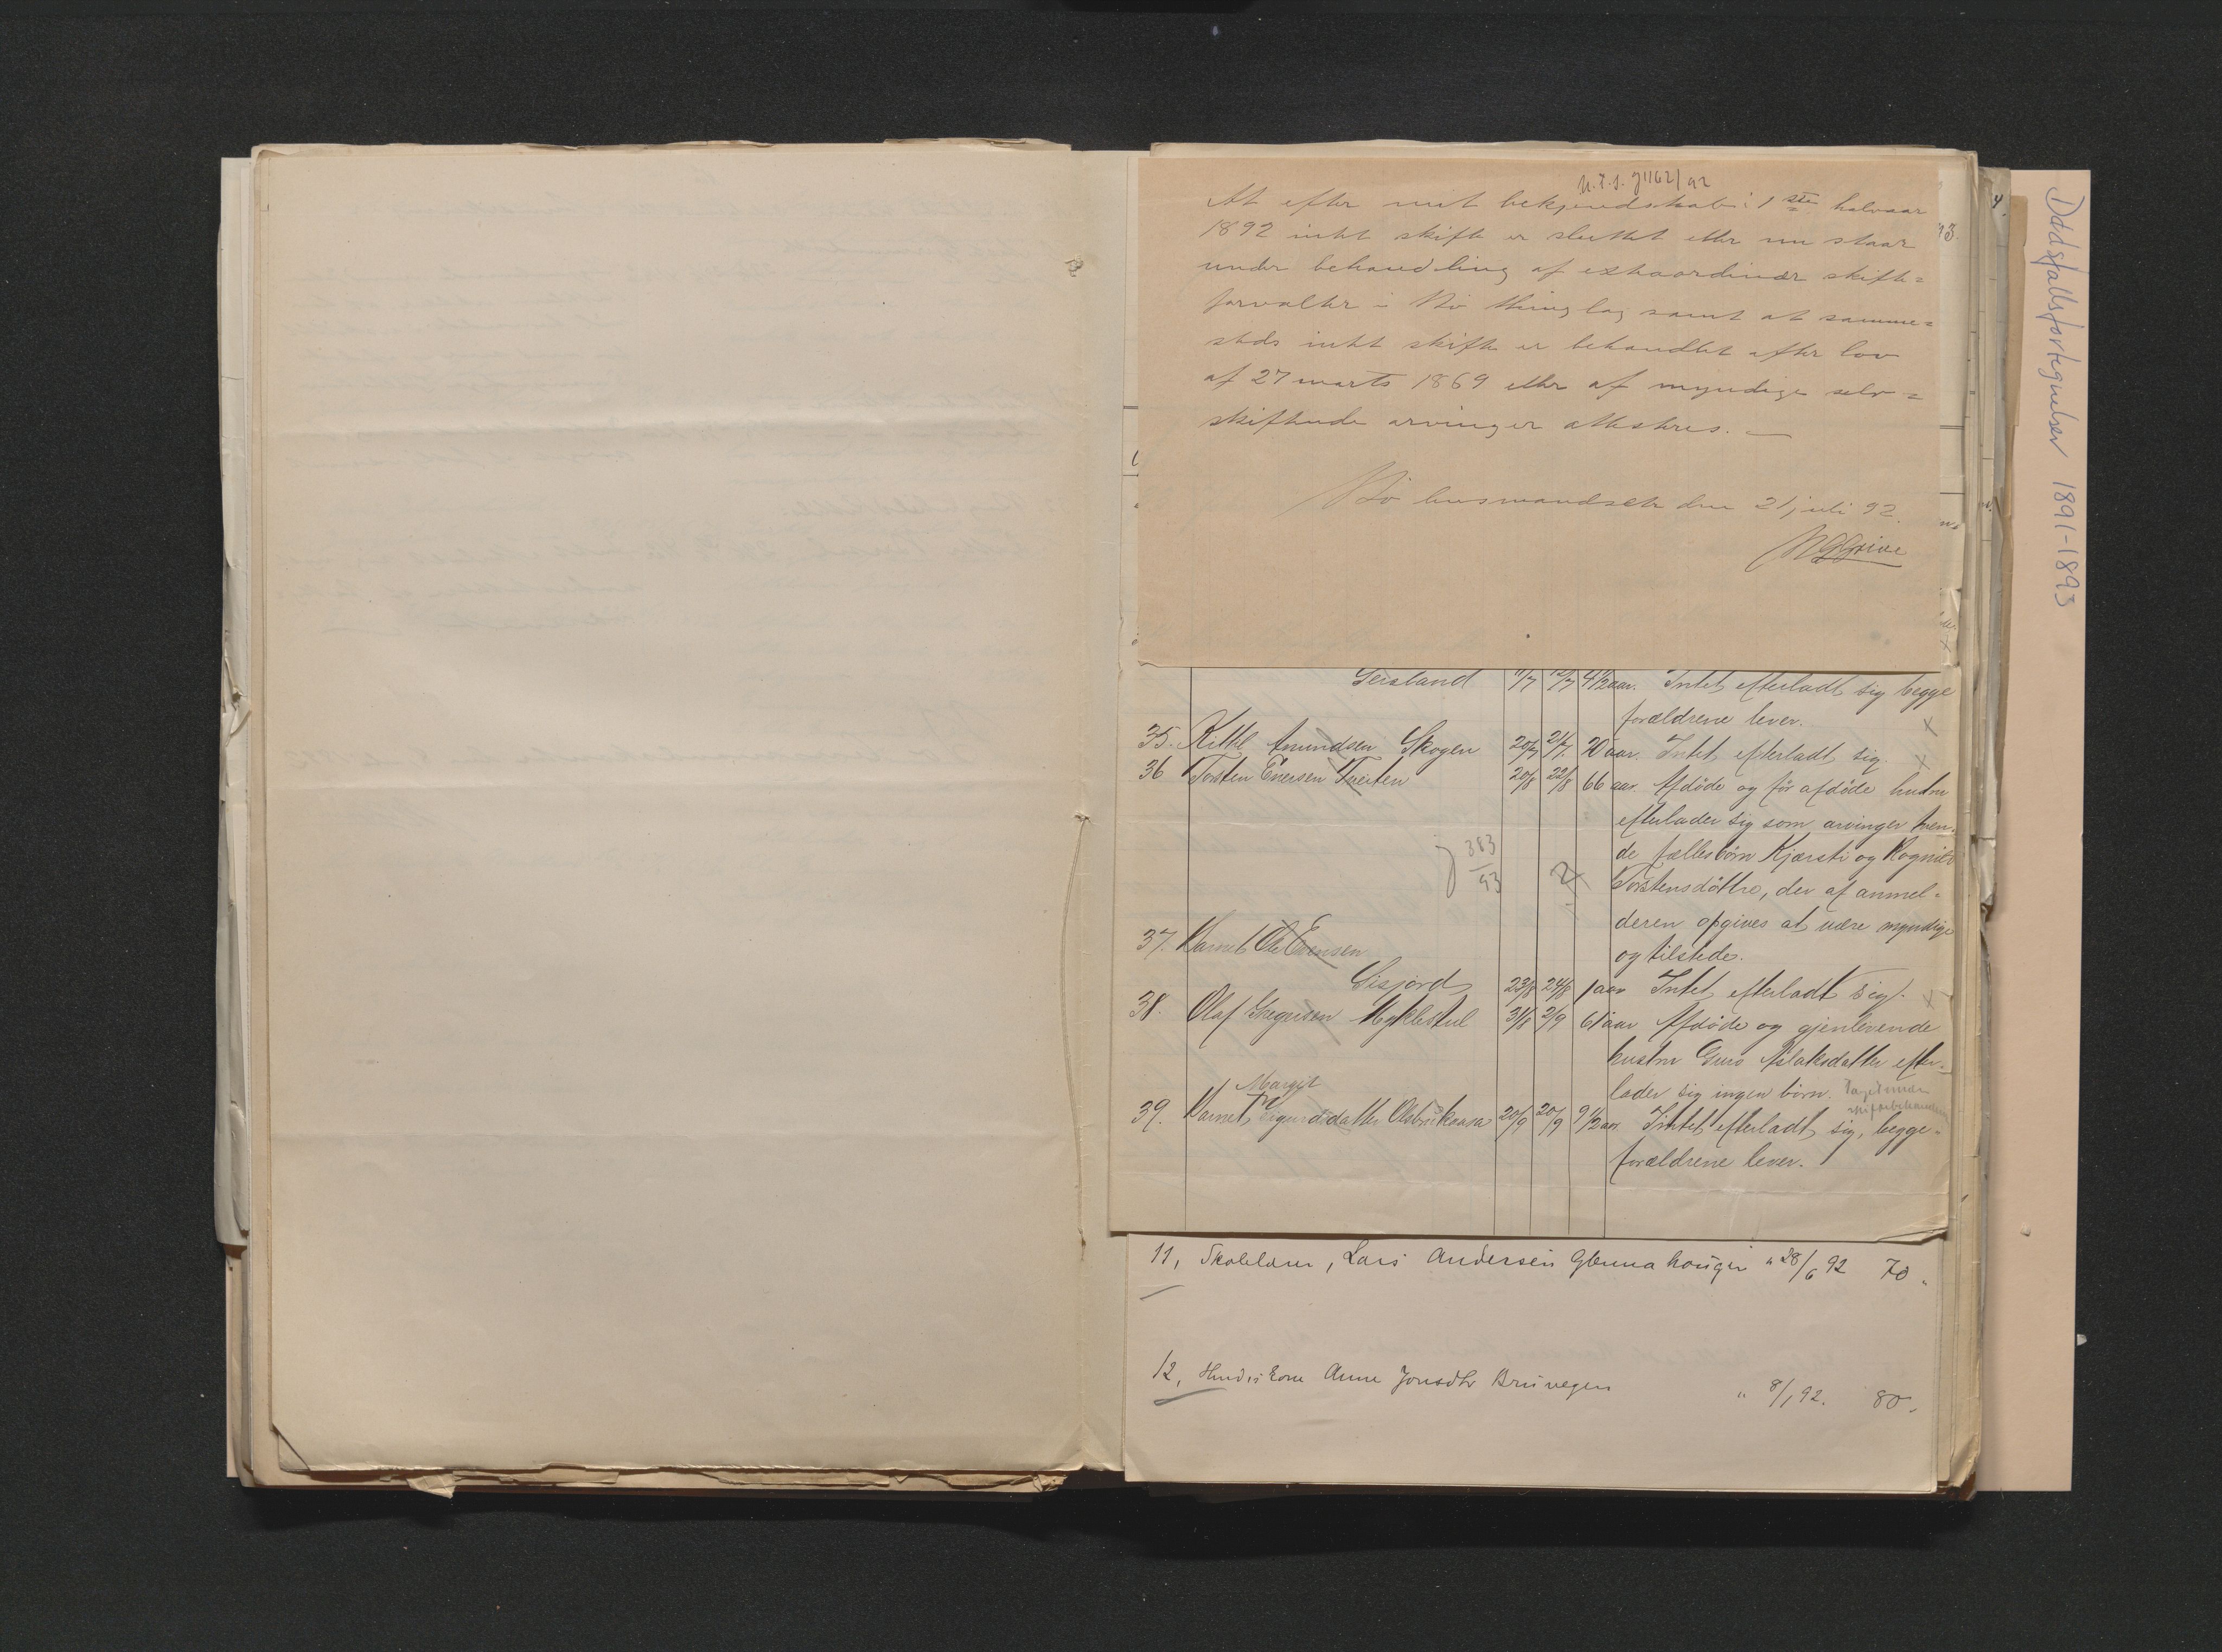 N.T.s. J1162/92
At efter mit bekjendskab i 1ste halvaar
1892 intet skifte er sluttet eller nu staar
under behandling af extraordinær skifte=
forvalter i Bø thinglag samt at samme=
steds intet skifte er behandlet efter lov
af 27 marts 1869 eller af myndige selv=
skiftende arvinger attesteres. —
Bø lensmandsetr den 21 juli 92.
Geisland 11/7 12/7 4 1/2 aar. Intet efterladt sig begge
forældrene lever.
35. Kittil Amundsen Skogen 20/7 21/7 20 aar. Intet efterladt sig.
36 Tosten Evensen Tveiten 20/8 22/8 66 aar. Afdøde og før afdøde hustru
efterlader sig som arvinger tven-
de fællesbørn Kjærsti og Rognild
J 383/93 Torstensdøttre, der af anmel=
deren opgives at være myndige
og tilstede.
37. Barnet Ole Evensen
Gisjord 23/8 24/8 1 aar Intet efterladt sig.
38. Olaf Gregarsen Myklestul 31/8 2/9 61 aar Afdøde og gjenlevende
hustru Guro Aslaksdatter efter-
lader sig ingen børn. Taget under
skiftebehandling
Margit
39. Barnet Sigurdsdatter Olsbrokaasa 20/9 20/9 9 1/2 aar. Intet efterladt sig, begge-
forældrene lever.
11, Skolelærer, Lars Andersen Glenna hougen " 28/6 92 70 "
12, Anne Jonsdtr Bruvegen " 8/1 92. 80 "
Dødsfallsfortegnelser 1891-1893